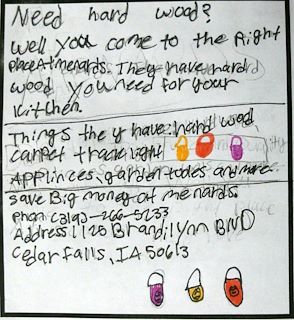 Need hard wood?
Well you come to the Right
place At menards. They have hard
wood you need for your
kitchen.
Things the y have: hard wood
carpet track light
Applinces, garden tooles and more.
save Big money at menards.
phon: (319)-266-5233
Address: 1125 Brandilynn BlVD
Cedar falls, IA 50613